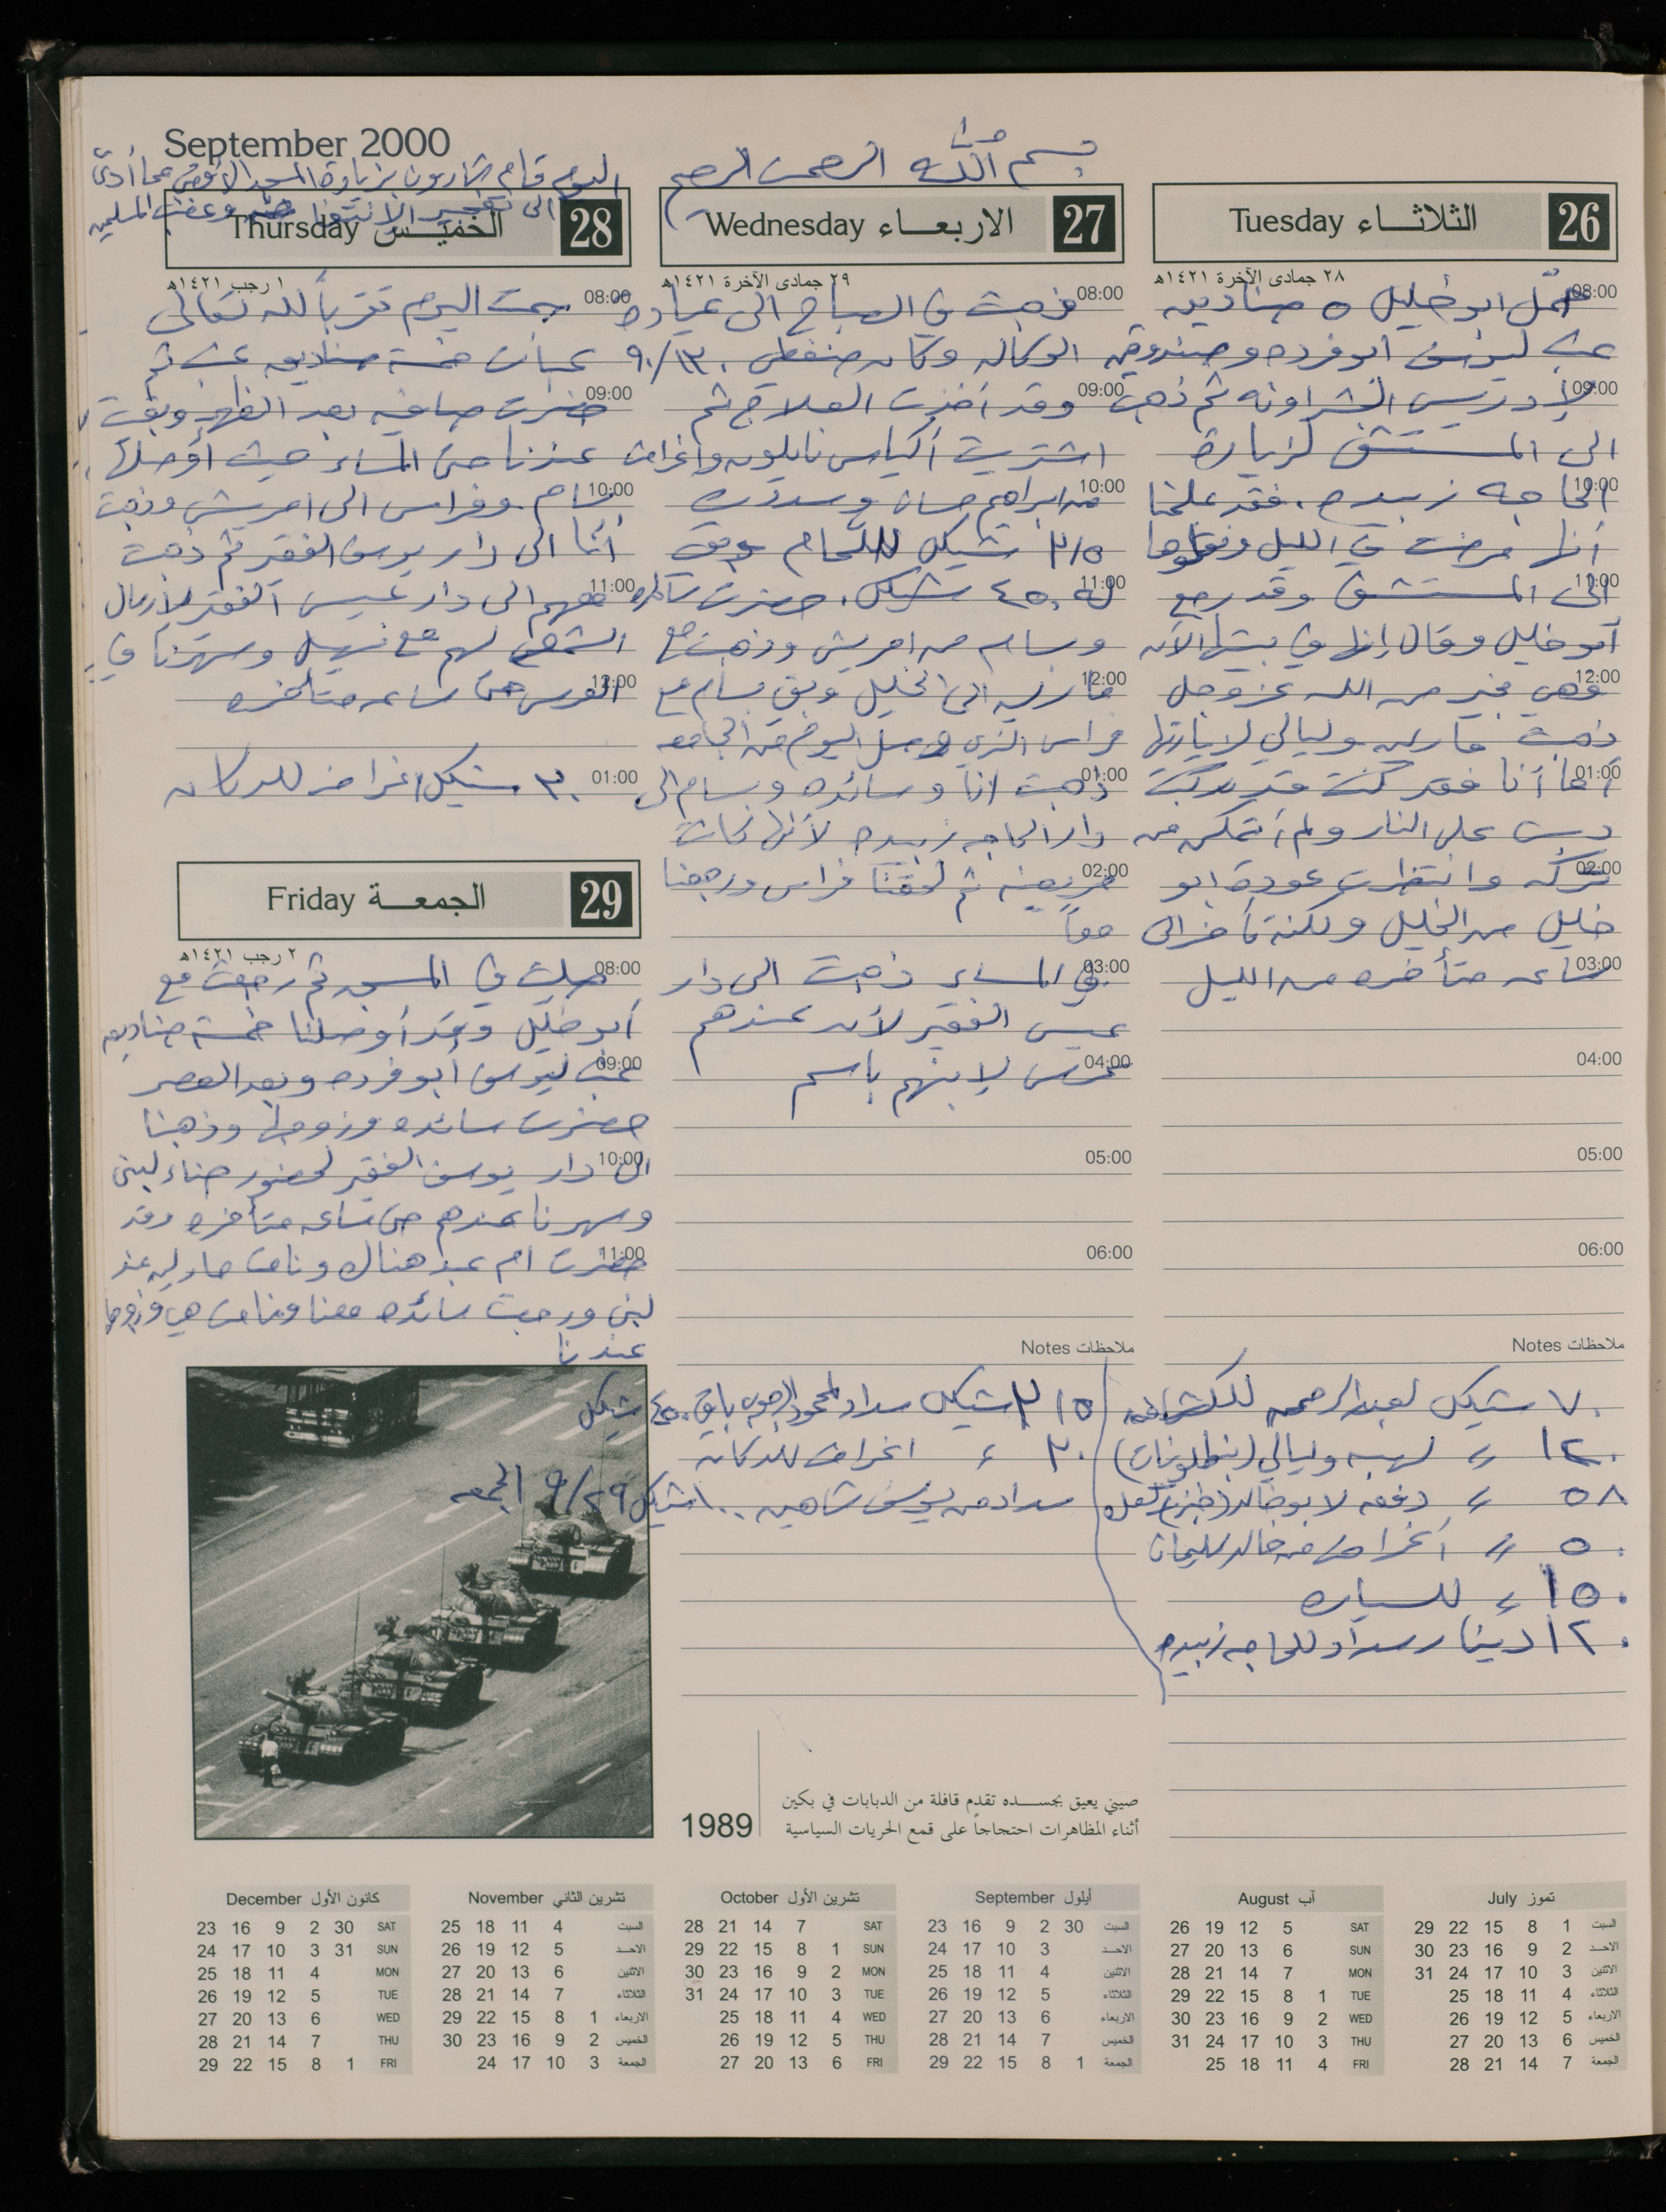 September 2000
بسم الله الرحمن الرحيم
اليوم قام شارون بزيارة المسجد الأقصى مما أدى
الى تفجير الانتفاضة وغضب المسلمين
26 الثلاثاء Tuesday
٢٨ جمادى الآخرة ١٤٢١هـ
08:00 حمّل ابو خليل ٥ صناديق
عنب ليوسف ابو فرده وصندوق
09:00 لإدريس الشراونه ثم ذهبت
الى المستشفى لزيارة
10:00 الحاجه زبيده. فقد علمنا
أنها مرضت في الليل ونقلوها
11:00 الى المستشفى وقد رجع
ابو خليل وقال إنها في بيتها الآن
12:00 وهي بخير من الله عز وجل
ذهبت مارلين وليالي لزيارتها
01:00 أما أنا فقد كنت قد ركبت
دبس على النار ولم أتمكن من
02:00 تركه وانتظرت عودة ابو
خليل من الخليل ولكنه تأخر الى
03:00 ساعه متأخره من الليل
04:00
05:00
06:00
ملاحظات Notes
٧٠ شيكل لعبد الرحمن للكشافه
١٢٠ // لهبه وليالي (بنطلونات)
٥٨ // دفعه لابو خالد (خبز)
٥٠ // أغراض من خالد سليمان
١٥٠ // للسياره
١٢٠ دينار سداد للحاجه زبيده
27 الاربعاء Wednesday
٢٩ جمادى الآخرة ١٤٢١هـ
08:00 ذهبت في الصباح الى عيادة
الوكاله وكان ضغطي ٩٠/١٣٠
09:00 وقد أخذت العلاج ثم
اشتريت أكياس نايلون واغراض
10:00 من ابراهيم حسان وسددت
٣١٥ شيكل للحام وبقي
11:00 له ٤٥٠ شيكل. حضرت سائده
وبسام من امريش وذهبت مع
12:00 مارلين الى الخليل وبقي بسام مع
فراس الذي وصل اليوم من الجامعه
01:00 ذهبت انا وسائده وبسام الى
دار الحاجه زبيده لأنها كانت
02:00 مريضه ثم لحقنا فراس ورجعنا
معاً
03:00 في المساء ذهبت الى دار
عيسى الفقير لأن عندهم
04:00 عرس لابنهم باسم
05:00
06:00
ملاحظات Notes
٣١٥ شيكل سداد لمحمود باقي ٤٥٠ شيكل
٣٠ // اغراض للدكانه
سداد من يوسف شاهين ١٠٠ شيكل ٩/٢٩ الجمعه
28 الخميس Thursday
١ رجب ١٤٢١هـ
08:00 صمت اليوم تقرباً لله تعالى
عبأت خمسة صناديق عنب ثم
09:00 حضرت صافيه بعد الظهر وبقيت
عندنا حتى المساء حيث أوصلها
10:00 بسام وفراس الى امريش وذهبت
أنا الى دار يوسف الفقير ثم ذهبت
11:00 معهم الى دار عيسى الفقير لإرسال
لهم مع نهيل وسهرنا في
12:00 العرس حتى ساعه متأخره
01:00 ٣٠ شيكل اغراض للدكان
29 الجمعة Friday
٢ رجب ١٤٢١هـ
08:00 صليت في المسجد ثم رجعت مع
أبو خليل وقد أوصلنا خمسة صناديق
09:00 عنب ليوسف أبو فرده وبعد العصر
حضرت سائده وزوجها وذهبنا
10:00 الى دار يوسف الفقير لحضور حناء لبنى
وسهرنا عندهم حتى ساعه متأخره وقد
11:00 حضرت ام عبد هناك ونامت مارلين عند
لبنى ورجعت سائده معنا ونامت هي وزوجها
عندنا
1989
صيني يعيق بجسده تقدم قافلة من الدبابات في بكين
أثناء المظاهرات احتجاجاً على قمع الحريات السياسية
تموز July
السبت 1 8 15 22 29
الاحد 2 9 16 23 30
الاثنين 3 10 17 24 31
الثلاثاء 4 11 18 25
الاربعاء 5 12 19 26
الخميس 6 13 20 27
الجمعة 7 14 21 28
آب August
SAT 5 12 19 26
SUN 6 13 20 27
MON 7 14 21 28
TUE 1 8 15 22 29
WED 2 9 16 23 30
THU 3 10 17 24 31
FRI 4 11 18 25
أيلول September
السبت 30 2 9 16 23
الاحد 3 10 17 24
الاثنين 4 11 18 25
الثلاثاء 5 12 19 26
الاربعاء 6 13 20 27
الخميس 7 14 21 28
الجمعة 1 8 15 22 29
تشرين الأول October
SAT 7 14 21 28
SUN 1 8 15 22 29
MON 2 9 16 23 30
TUE 3 10 17 24 31
WED 4 11 18 25
THU 5 12 19 26
FRI 6 13 20 27
تشرين الثاني November
السبت 4 11 18 25
الاحد 5 12 19 26
الاثنين 6 13 20 27
الثلاثاء 7 14 21 28
الاربعاء 1 8 15 22 29
الخميس 2 9 16 23 30
الجمعة 3 10 17 24
كانون الأول December
SAT 30 2 9 16 23
SUN 31 3 10 17 24
MON 4 11 18 25
TUE 5 12 19 26
WED 6 13 20 27
THU 7 14 21 28
FRI 1 8 15 22 29